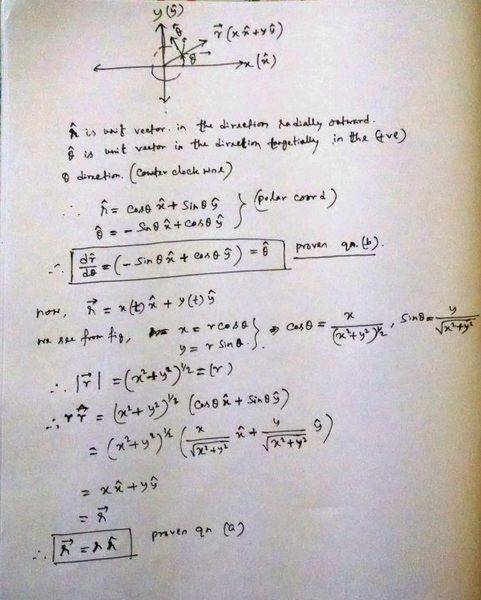 y(ŷ)
θ̂ r⃗ (xx̂+yŷ)
θ x(x̂)
r̂ is unit vector in the direction radially outward.
θ̂ is unit vector in the direction tangetially in the (+ve)
θ direction. (counter clock wise)
∴ r̂ = cosθ x̂ + sinθ ŷ } (polar coord)
θ̂ = -sinθ x̂ + cosθ ŷ
∴ dr̂/dθ = (-sinθ x̂ + cosθ ŷ) = θ̂ proven qn.(b).
now, r⃗ = x(t) x̂ + y(t) ŷ
we see from fig, x = r cosθ } ⇒ cosθ = x/(x²+y²)^½, sinθ = y/√(x²+y²)
y = r sinθ
∴ |r⃗| = (x²+y²)^½ = (r)
∴ r r̂ = (x²+y²)^½ (cosθ x̂ + sinθ ŷ)
= (x²+y²)^½ (x/√(x²+y²) x̂ + y/√(x²+y²) ŷ)
= xx̂ + yŷ
= r⃗
∴ r⃗ = r r̂ proven qn (a)